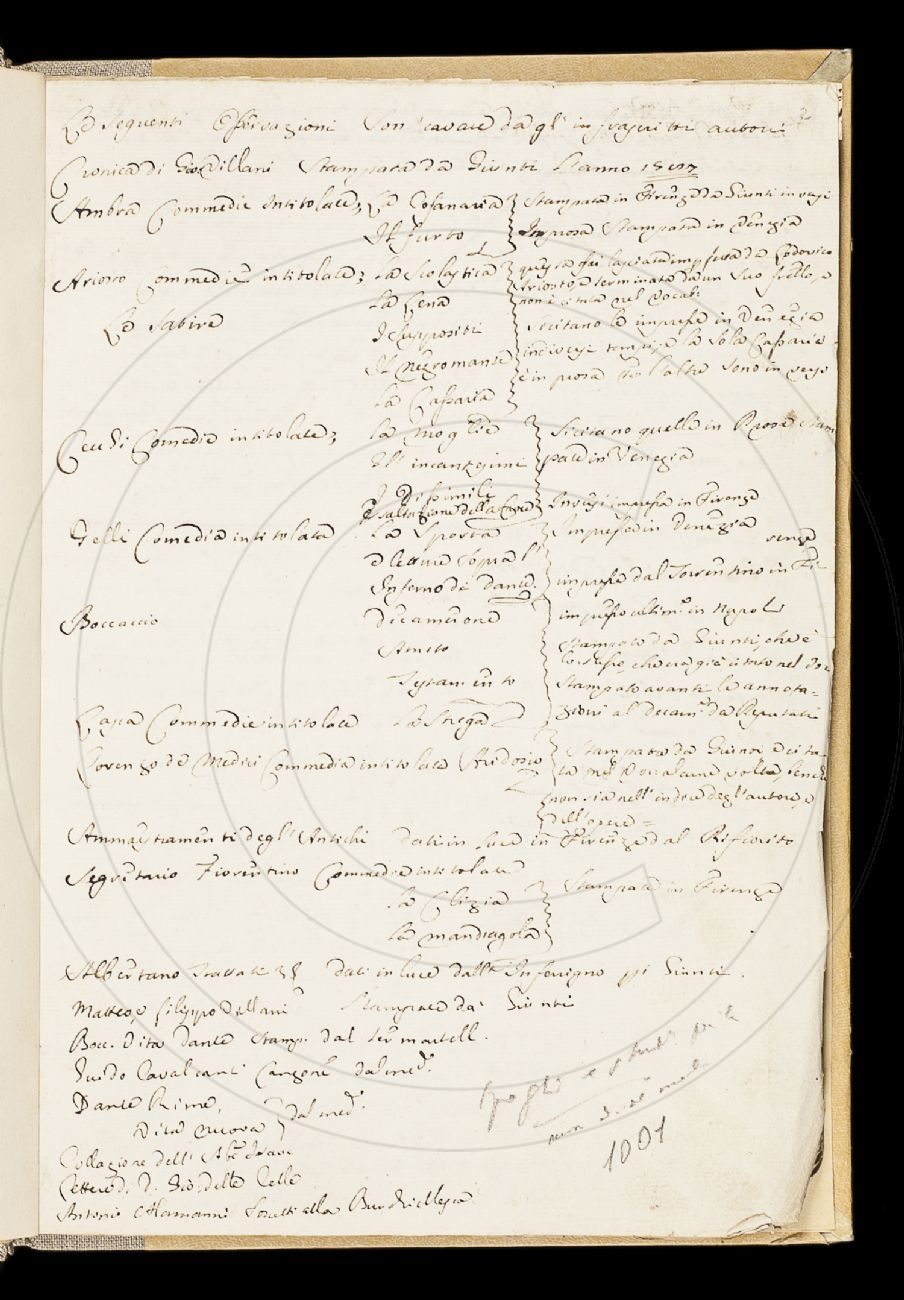 Le seguenti Osservazioni son cavate da gl' infrascritti autori
Cronica di Gio: Villani Stampata da Giunti L'anno 1587
Ambra Commedie Intitolate; La Cofanaria Stampata in Firenze da Giunti in versi
Il furto In prosa Stampata in Venezia
Ariosto Commedie intitolate; La Scolastica questa fu lasciata imperfetta da Lodovico
Ariosto, e terminata da un suo frello, e
non è citata nel Vocab:
Le Satire La Lena Si citano le impresse in Venezia
I Suppositi in diversi tempi, e la sola Cassaria
Il Negromante è in prosa che l'altre sono in versi
La Cassaria
Cecchi Comedie intitolate; La Moglie Si citano quelle in Prosa Stam
Gl' incantesimi pate in Venezia
I Dissimili
Esaltazione della Croce In versi impressa in Firenze
Gelli Comedia intitolata La Sporta Impressa in Venezia
e letture sopra l' senza
Inferno di Dante. impresse dal Torrentino in Fi-
Boccaccio Decamerone impresso ultim.o in Napoli
Ameto Stampato da Giunti, che è
lo stesso, che era già citato nel Vo-
Testamento Stampato avanti le annota-
zioni al Decam: da Deputati
Lasca Commedie intitolate La Strega
Lorenzo de Medici Commedia intitolata Aridosio Stampata da Giunti è cita
ta nel Voc: alcune volte, benché
non sia nell' indice degl' autori, e
dell' opere =
Ammaestramenti degl' Antichi dati in luce in Firenze dal Rifiorito
Segretario Fiorentino Commedie intitolate
La Clizia Stampate in Firenze
La Mandragola
Albertano Trattati 3 dati in luce dall' Inferigno pi Giunti.
Matteo, e Filippo Villani Stampate da Giunti
Bocc. Vita Dante Stamp. dal Sermartell.
Guido Cavalcanti Canzone dal med.o
Dante Rime, dal med.o
Vita nuova
Collazione dell' Ab.te Isaac
Lettere di D. Gio: delle Celle
Antonio Alamanni Sonetti alla Burchiellesca
1001